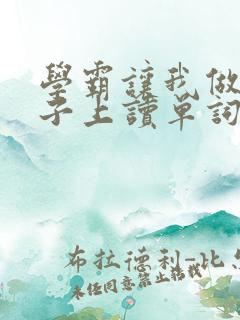 學霸讓我做
子上讀單詞
布拉德利-比
未經同意禁止轉載